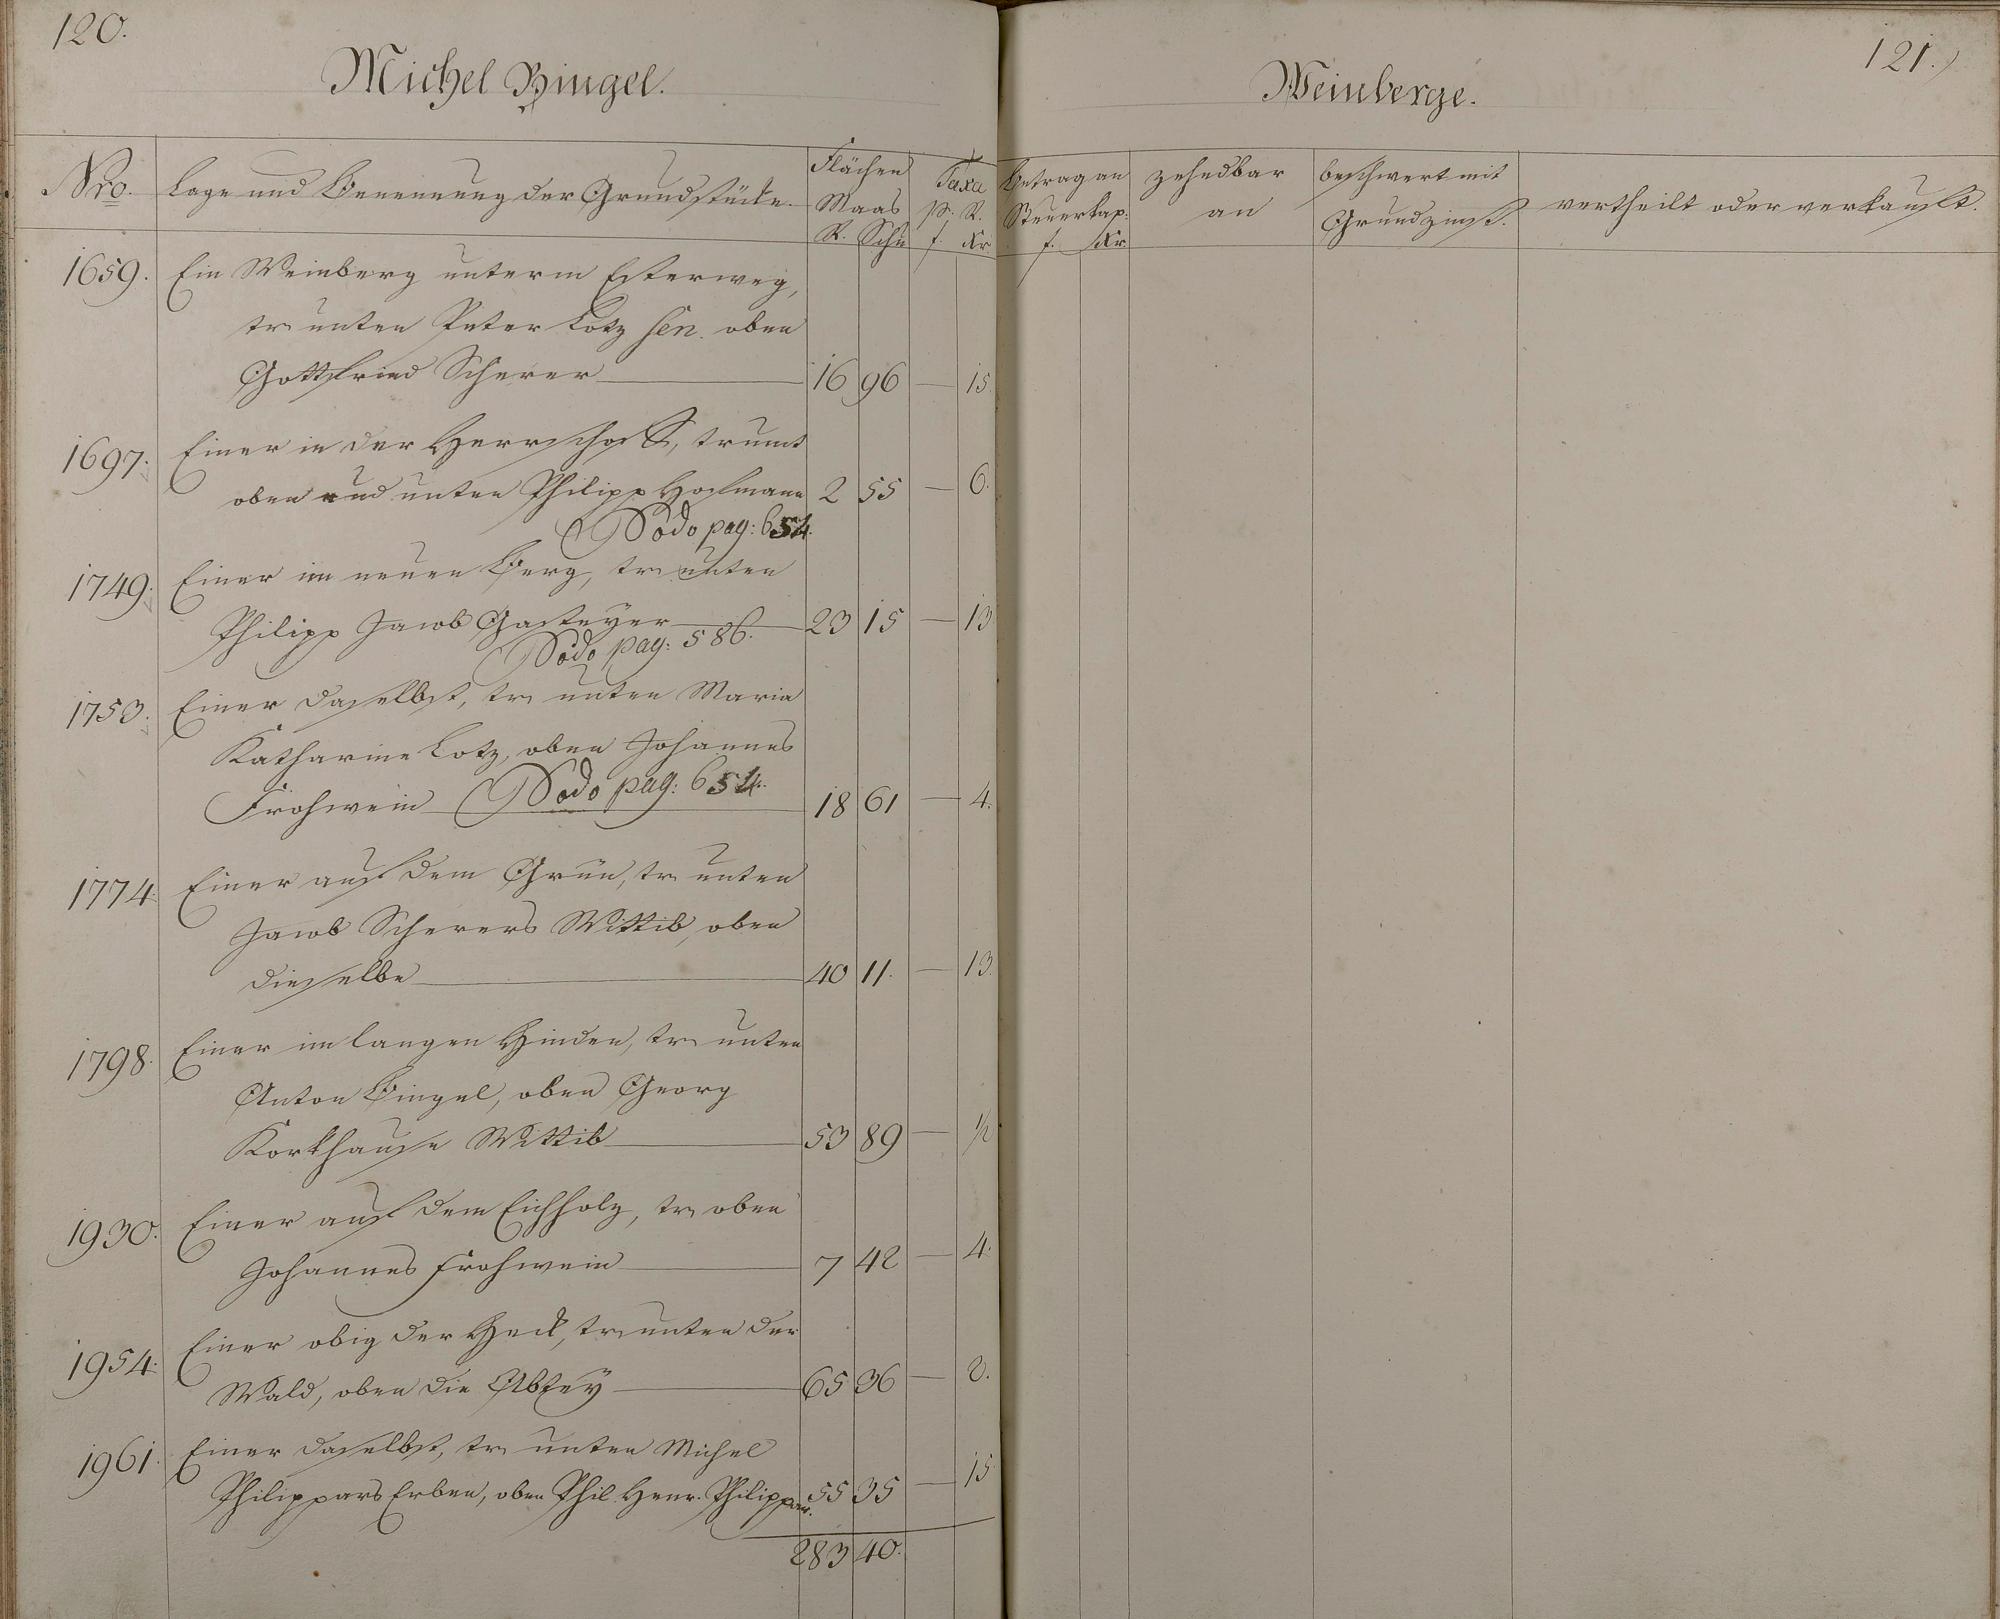 120.
Michel Bingel.
Nro.
Lage und Benennung der Grundstücke.
Flächen
Maas
R. Schu
Taxa
pr. R.
f. Xr
1659. Ein Weinberg unterm Esterweg,
tr. unten Peter Lotz sen. oben
Gottfried Scherer 16 96 — 15.
1697. Einer in der Herrschaft, trumt
oben und unten Philipp Hofmann 2 55 — 6.
Dodo pag: 654.
1749. Einer im neuen Berg, tr. unten
Philipp Jacob Gasteyer 23 15 — 13
Dodo pag: 586.
1753. Einer daselbst, tr. unten Maria
Katharine Lotz, oben Johannes
Frohwein Dodo pag: 654. 18 61 — 4.
1774. Einer auf dem Grün, tr. unten
Jacob Scherers Wittib, oben
dieselbe 40 11. — 13.
1798. Einer im langen Hinden, tr. unten
Anton Bingel, oben Georg
Korkhause Wittib 53 89 — 1/2
1930. Einer auf dem Eichholz, tr. oben
Johannes Frohwein 7 42 — 4.
1954. Einer obig der Heck, tr. unten der
Wald, oben die Abtey 65 36 — 3.
1961. Einer daselbst, tr. unten Michel
Philippars Erben, oben Phil. Henr. Philippar. 55 35 — 15
283 40.
121.
Weinberge.
Betrag an
Steuerkap:
f. Xr.
zehndbar
an
beschwert mit
Grundzinß.
vertheilt oder verkauft.